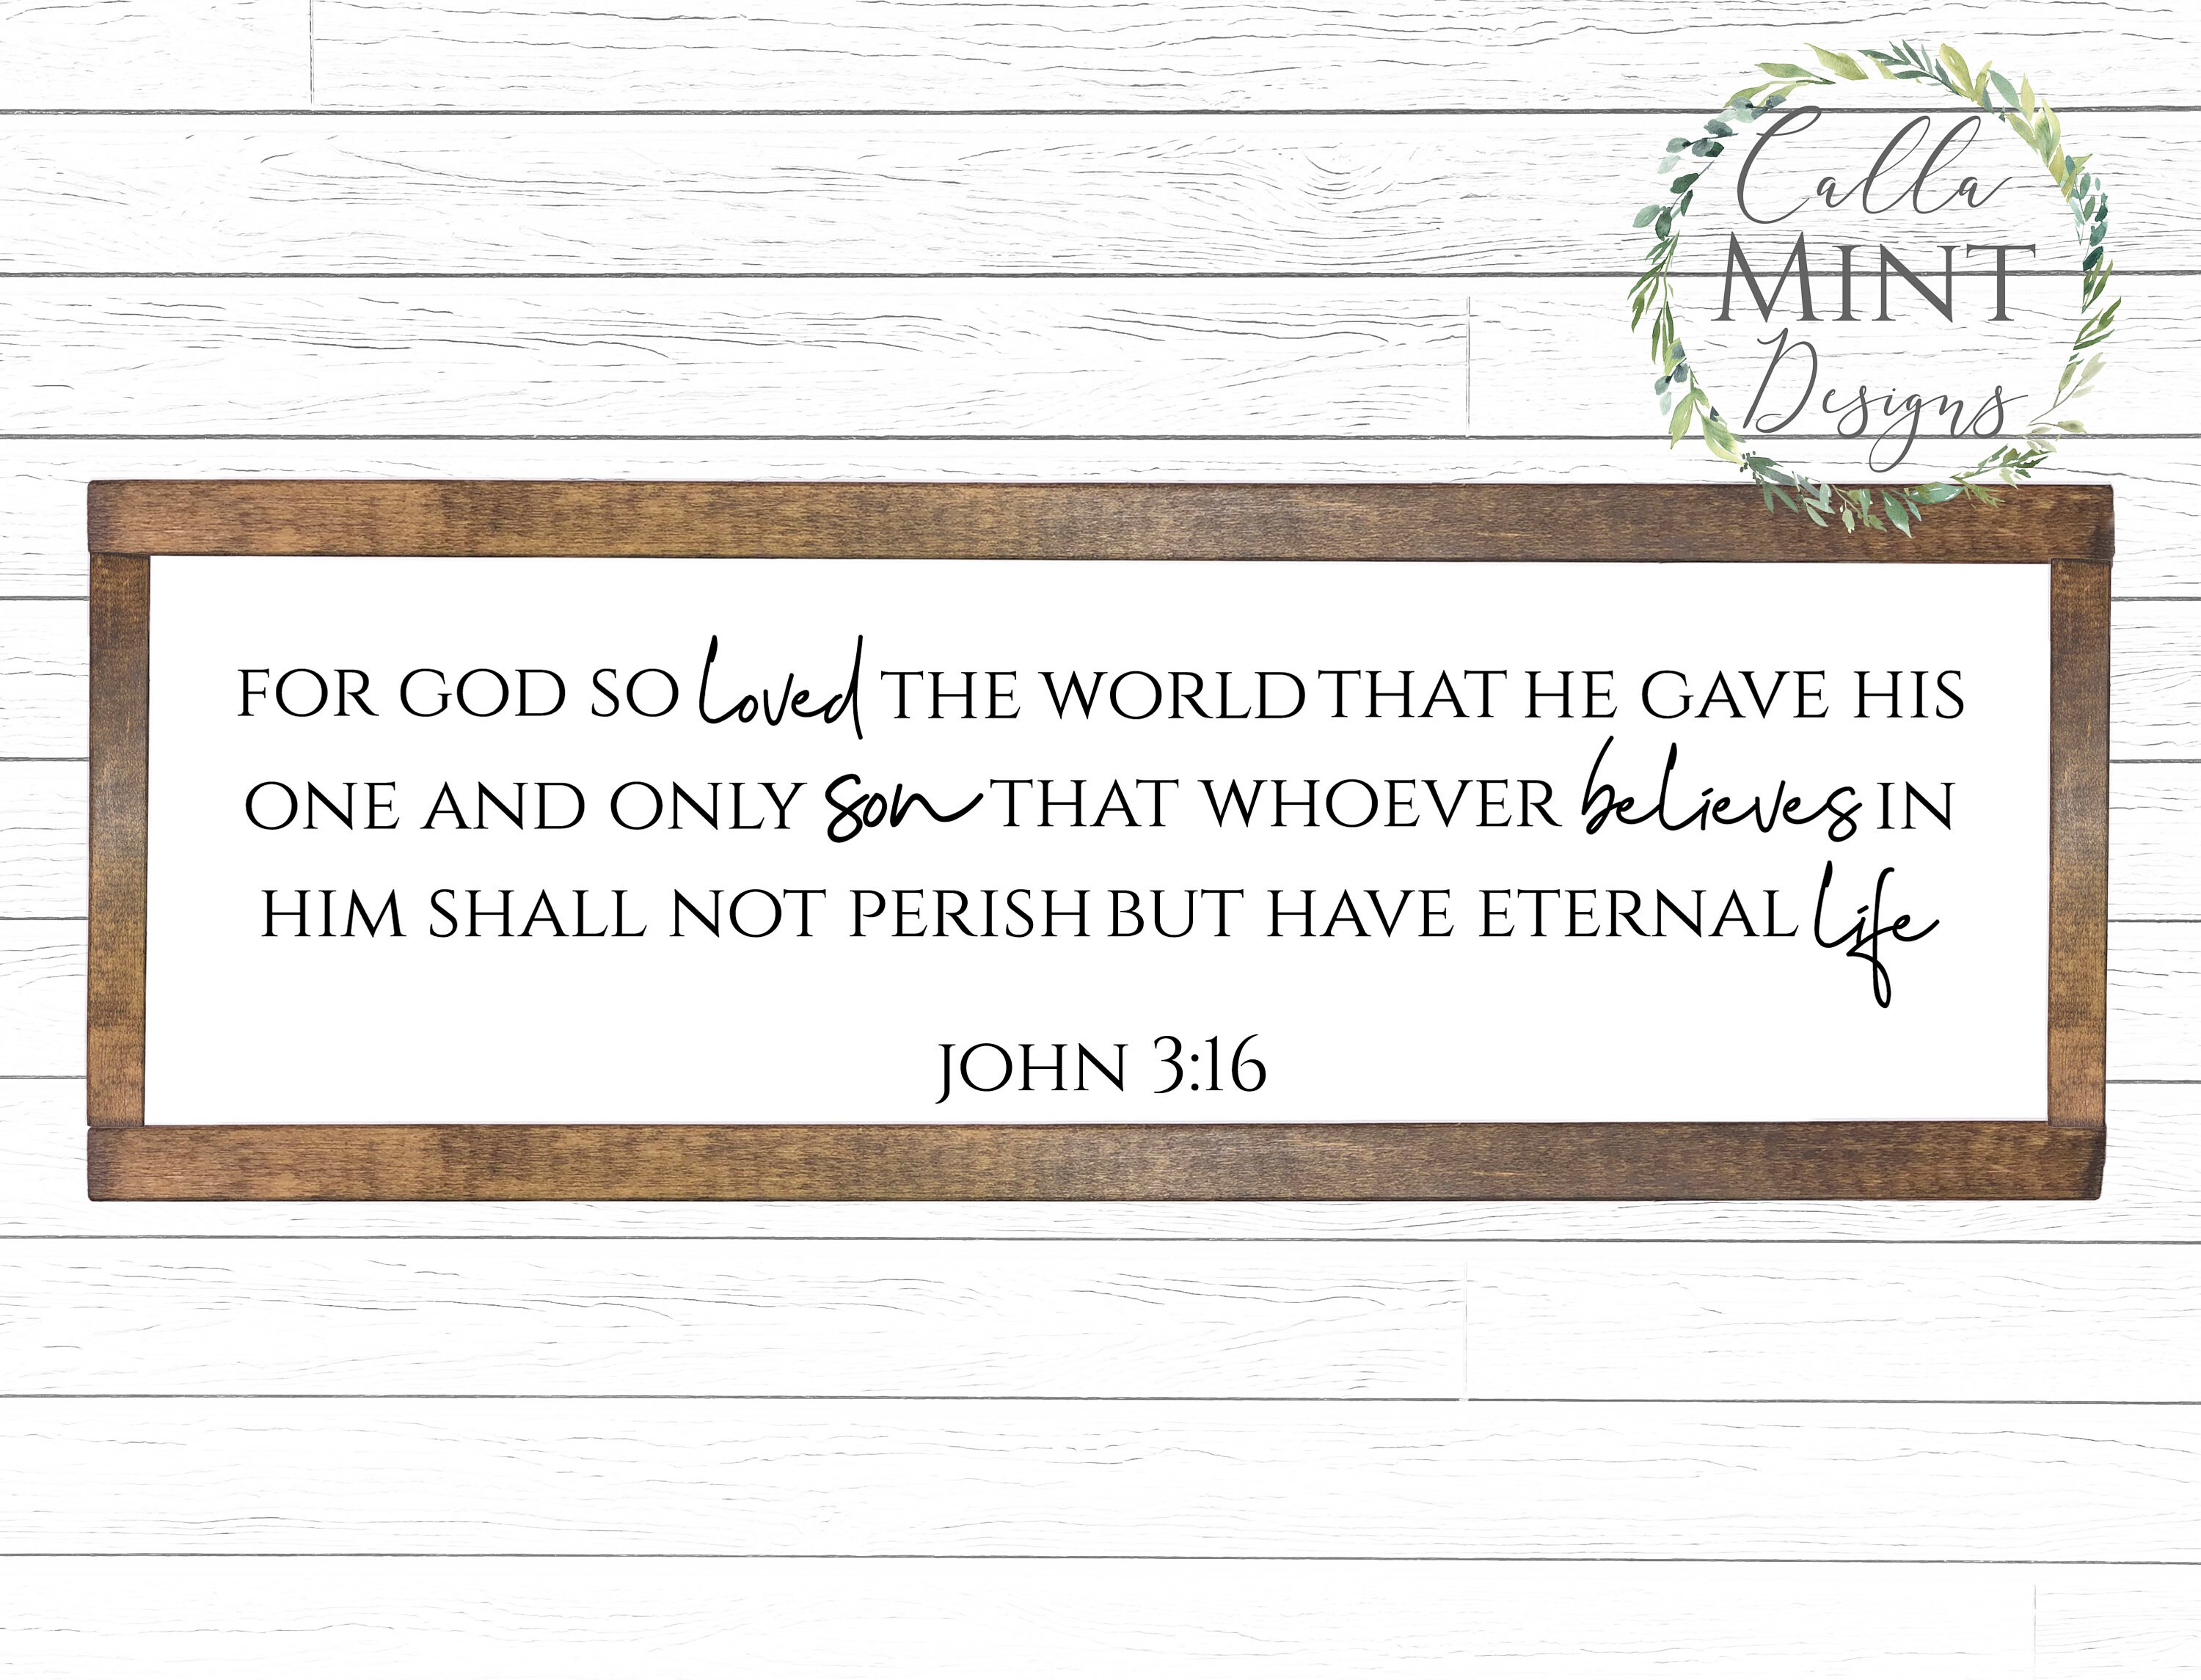 Calla
MINT
Designs
FOR GOD SO loved THE WORLD THAT HE GAVE HIS
ONE AND ONLY son THAT WHOEVER believes IN
HIM SHALL NOT PERISH BUT HAVE ETERNAL life
JOHN 3:16